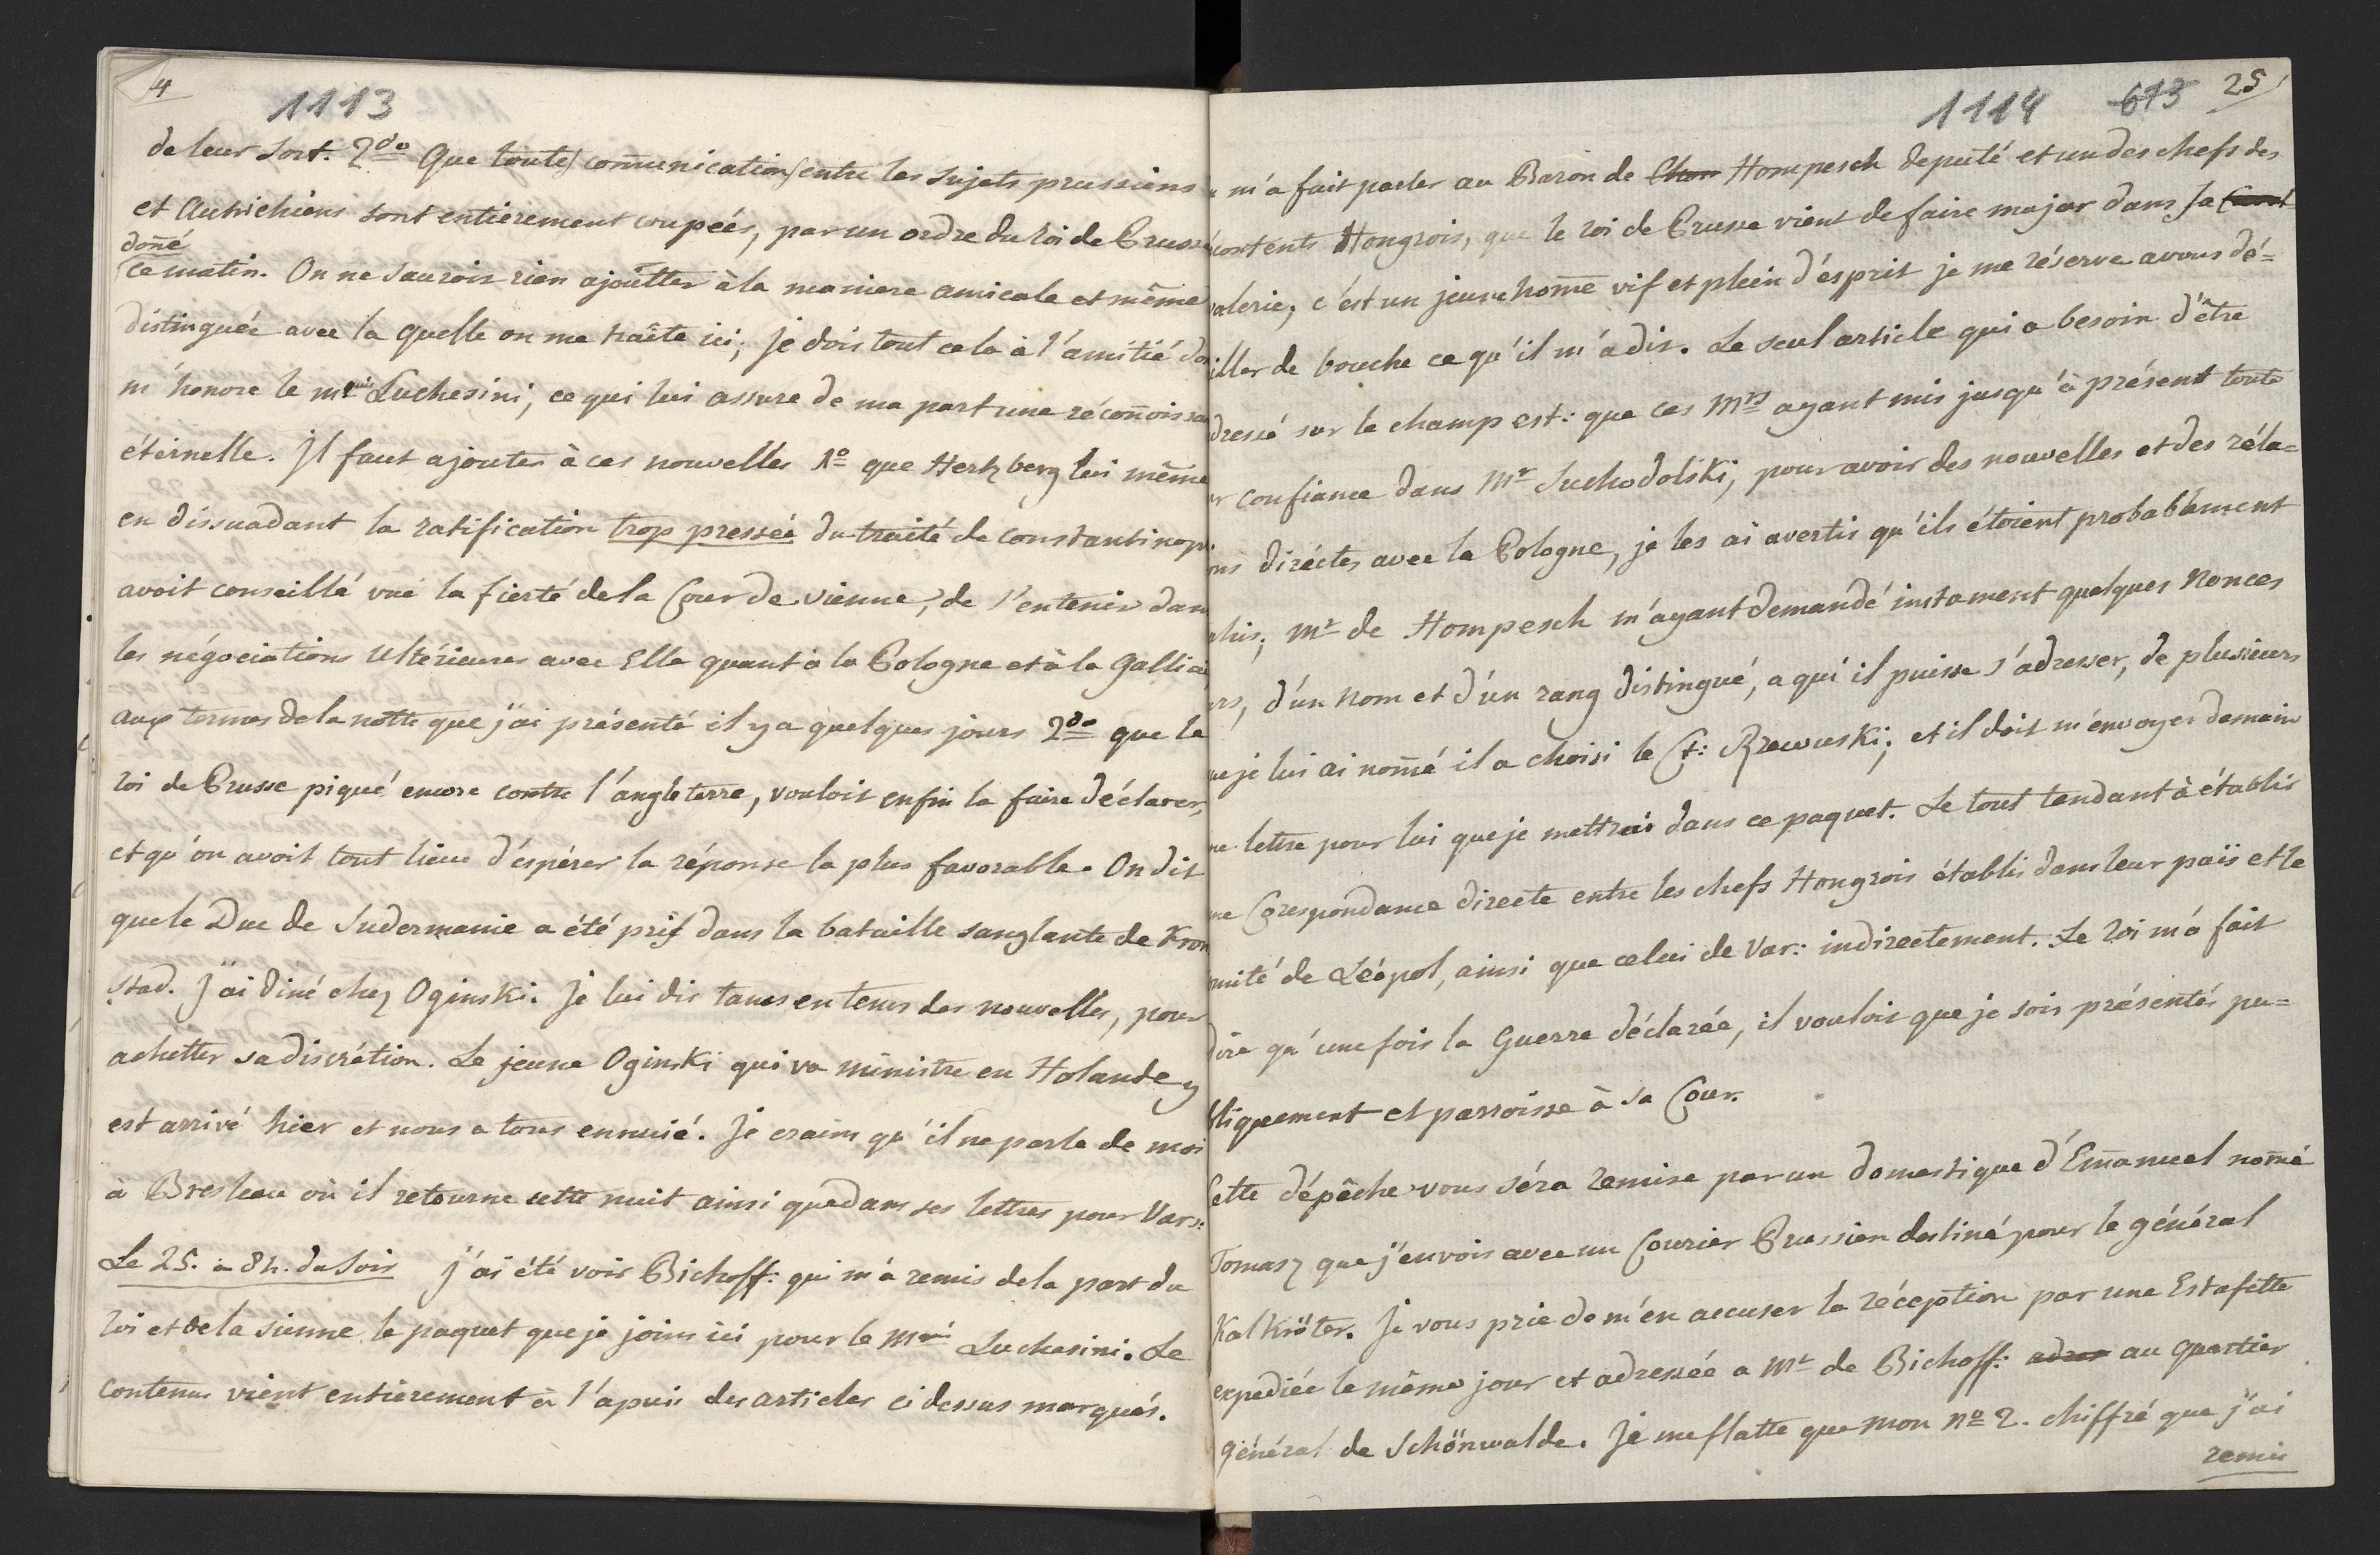 4
1113
de leur sort. 2do Que toute communication entre les sujets prussiens
et Autrichiens sont entièrement coupées, par un ordre du Roi de Prusse
doñé
ce matin. On ne sauroit rien ajoutter à la maniere amicale et même
distinguée avec la quelle on me traîte ici; je dois tout cela à l'amitié do
m'honore le mquis Luchesini, ce qui lui assure de ma part une récoñoissa
éternelle. Il faut ajouter à ces nouvelles 1o que Hertzberg lui même
en dissuadant la ratification trop pressée du traité de Constantinop
avoit conseillé vuë la fierté de la Cour de Vienne, de s'en tenir dan
les négociations Ultérieures avec Elle quant à la Pologne et à la Gallicie,
aux termes de la notte que j'ai présenté il y a quelques jours 2do que le
roi de Prusse piqué encore contre l'angleterre, vouloit enfin la faire déclarer,
et qu'on avoit tout lieu d'espérer la réponse la plus favorable. On dit
que le Duc de Sudermanie a été pris dans la bataille sanglante de Kron
stad. J'ai diné chez Oginski. Je lui dis tems en tems des nouvelles, pour
achetter sa discrétion. Le jeune Oginski qui va ministre en Holande y
est arrivé hier et nous a tous ennuié. Je crains qu'il ne parle de moi
à Breslau où il retourne cette nuit ainsi que dans ses lettres pour Vars:
Le 25. à 8h. du Soir J'ai été voir Bichoff: qui m'a remis de la part du
Roi et de la sienne le paquet que je joins ici pour le Mquis Luchesini. Le
contenu vient entièrement à l'apuis des articles ci dessus marqués.
1114 613 25
m'a fait parler au Baron de Chom Hompesch deputé et un des chefs des
contents Hongrois, que le roi de Prusse vient de faire major dans sa
valerie; c'est un jeune home vif et plein d'ésprit je me réserve a vous dé=
iller de bouche ce qu'il m'a dit. Le seul article qui a besoin d'être
dressé sur le champ est: que ces Mrs ayant mis jusqu'à présent toute
ur confiance dans Mr Suchodolski, pour avoir des nouvelles et des réla=
ons diréctes avec la Pologne, je les ai avertis qu'ils étoient probablement
ahis; Mr de Hompesch m'ayant demandé instament quelques Nonces
rs, d'un Nom et d'un rang distingué, a qui il puisse s'adresser, de plusieurs
ue je lui ai nomé il a choisi le Ct: Rzewuski; et il doit m'envoyer demain
ne lettre pour lui que je mettrai dans ce paquet. Le tout tendant à établir
ne Corespondance directe entre les chefs Hongrois établis dans leur païs et le
mité de Léopol, ainsi que celui de Var: indirectement. Le roi m'a fait
dire qu'une fois la Guerre déclarée, il vouloit que je sois présentés pu=
bliquement et parroisse à sa Cour.
Cette dépêche vous séra remise par un domestique d'Emanuel nomé
Tomasz que j'envois avec un Courier Prussien destiné pour le général
Kalkröter. Je vous prie de m'en accuser la réception par une Estafette
expediée le même jour et adressée a Mr de Bichoff: adres au Quartier
général de Schönwalde. Je me flatte que mon No 2. chiffré que j'ai
remis